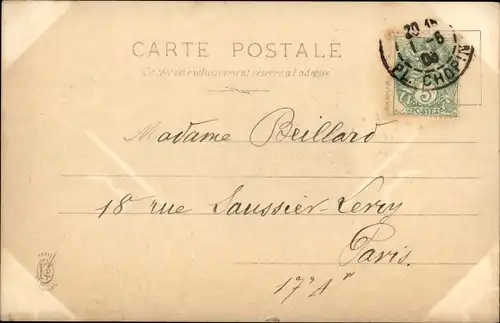 CARTE POSTALE
Ce côté est exclusivement réservé à l'adresse
20 15
1 - 6
04
PL. CHOPIN
5
POSTES
Madame Beillard
18 rue Saussier-Leroy
Paris.
17e Ar